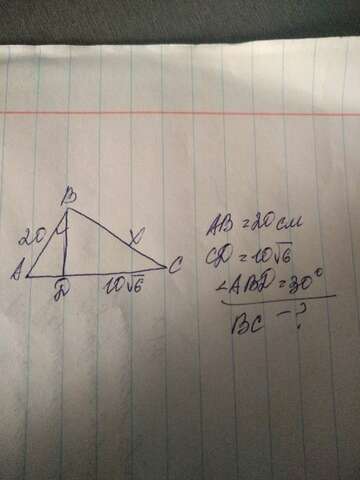 B
20
x
A
D
10√6
C
AB = 20 см
CD = 10√6
∠ABD = 30°
BC - ?